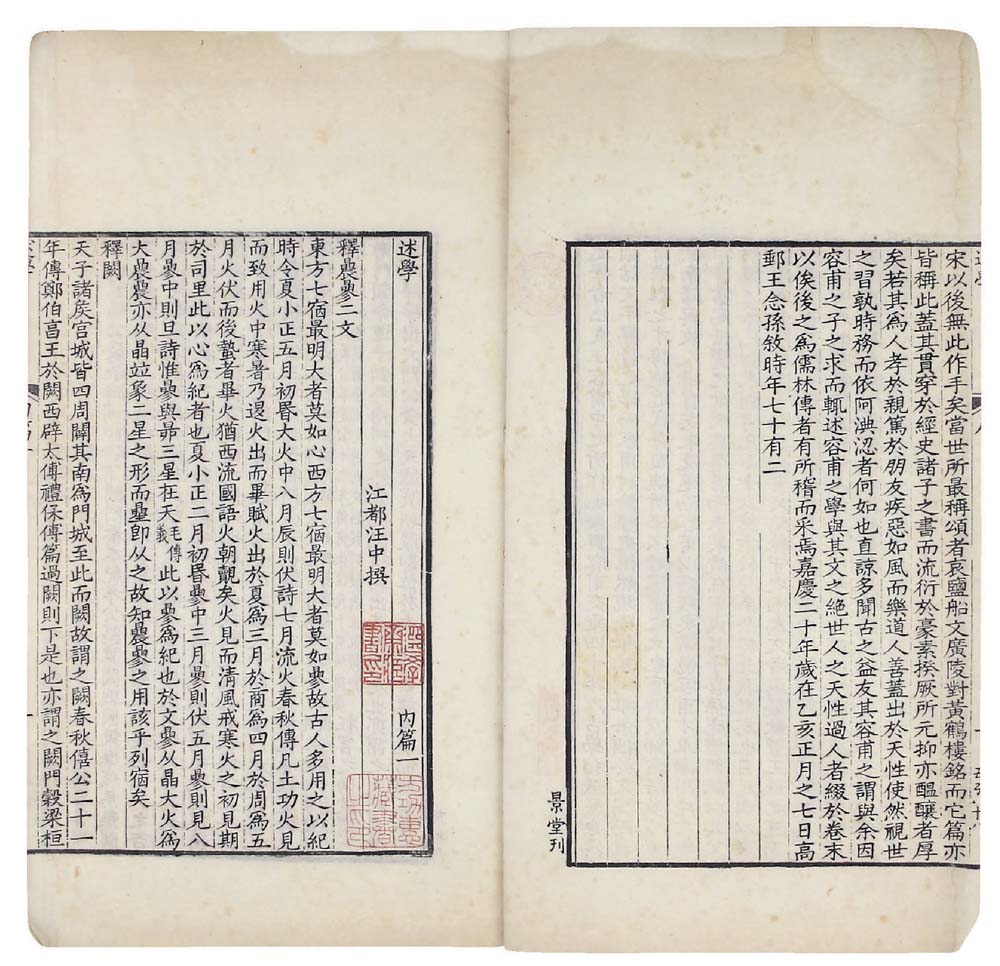 宋以後無此作手矣當世所最稱頌者哀鹽船文廣陵對黃鶴樓銘而它篇亦
皆稱此蓋其貫穿於經史諸子之書而流衍於豪素揆厥所元抑亦醞釀者厚
矣若其爲人孝於親篤於朋友疾惡如風而樂道人善蓋出於天性使然視世
之習孰時務而依阿淟涊者何如也直諒多聞古之益友其容甫之謂與余因
容甫之子之求而輒述容甫之學與其文之絶世人之天性過人者綴於卷末
以俟後之爲儒林傳者有所稽而采焉嘉慶二十年歲在乙亥正月之七日高
郵王念孫敘時年七十有二
景堂刊
述學 內篇一
江都汪中撰
釋䢅曑二文
東方七宿最明大者莫如心西方七宿最明大者莫如曑故古人多用之以紀
時令夏小正五月初昬大火中八月辰則伏詩七月流火春秋傳凡土功火見
而致用火中寒暑乃退火出而畢賦火出於夏爲三月於商爲四月於周爲五
月火伏而後蟄者畢火猶西流國語火朝覿矣火見而清風戒寒火之初見期
於司里此以心爲紀者也夏小正二月初昬曑中三月曑則伏五月曑則見八
月曑中則旦詩惟曑與昴三星在天毛傳義此以曑爲紀也於文曑从晶大火爲
大䢅䢅亦从晶竝象二星之形而曐卽从之故知䢅曑之用該乎列宿矣
釋闕
天子諸矦宮城皆四周闕其南爲門城至此而闕故謂之闕春秋僖公二十一
年傳鄭伯亯王於闕西辟太傅禮保傅篇過闕則下是也亦謂之闕門榖梁桓